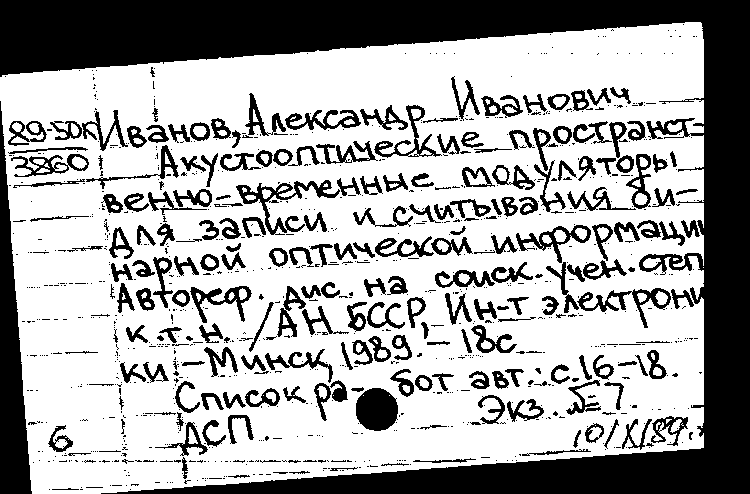 89-50К Иванов, Александр Иванович
3860 Акустооптические пространст-
венно-временные модуляторы
для записи и считывания би-
нарной оптической информации
Автореф. дис. на соиск. учен. степ
к.т.н. /АН БССР, Ин-т электрони
ки – Минск, 1989. – 18с
Список ра- бот авт.: с.16-18.
6 ДСП. Экз. №7.
10/X/89г.